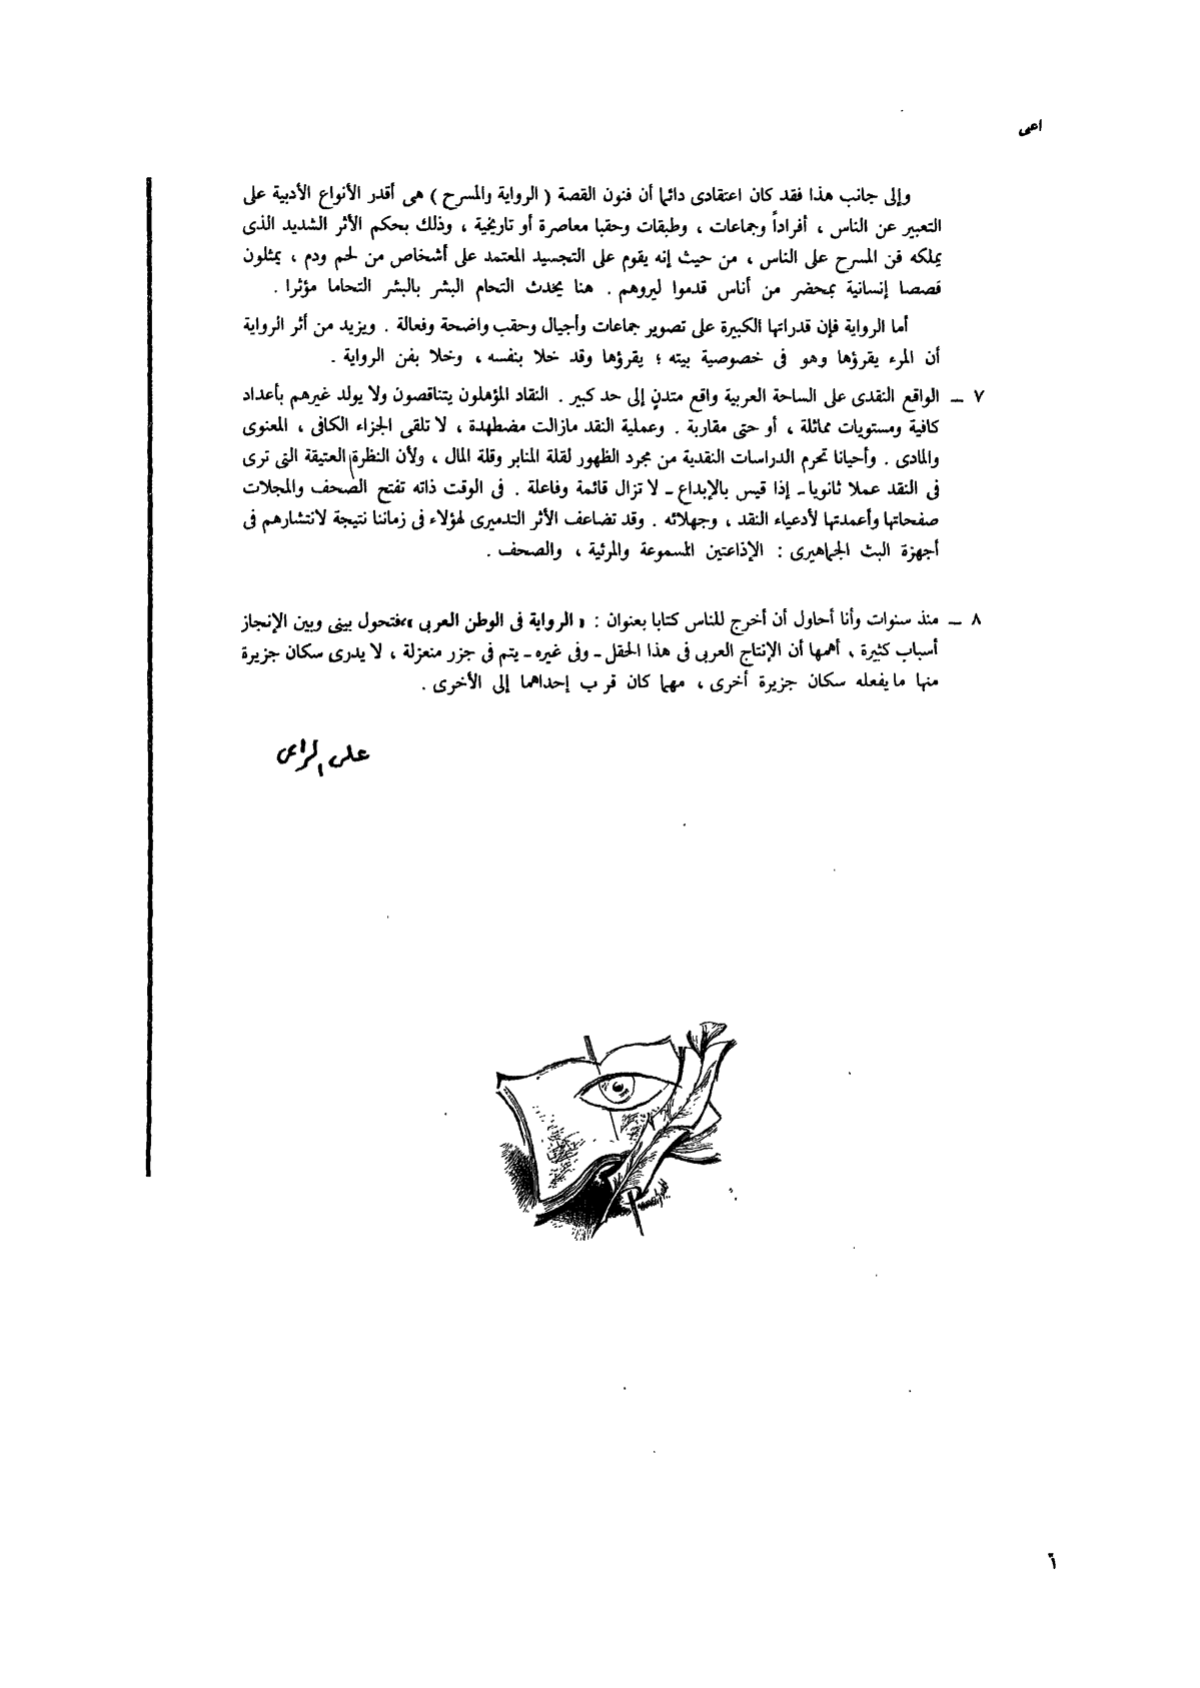 اعى
وإلى جانب هذا فقد كان اعتقادى دائما أن فنون القصة ( الرواية والمسرح ) هى أقدر الأنواع الأدبية على
التعبير عن الناس ، أفراداً وجماعات ، وطبقات وحقبا معاصرة أو تاريخية ، وذلك بحكم الأثر الشديد الذى
يملكه فن المسرح على الناس ، من حيث إنه يقوم على التجسيد المعتمد على أشخاص من لحم ودم ، يمثلون
قصصا إنسانية بمحضر من أناس قدموا ليروهم . هنا يحدث التحام البشر بالبشر التحاما مؤثرا .
أما الرواية فإن قدراتها الكبيرة على تصوير جماعات وأجيال وحقب واضحة وفعالة . ويزيد من أثر الرواية
أن المرء يقرؤها وهو فى خصوصية بيته ؛ يقرؤها وقد خلا بنفسه ، وخلا بفن الرواية .
٧ – الواقع النقدى على الساحة العربية واقع متدنٍ إلى حد كبير . النقاد المؤهلون يتناقصون ولا يولد غيرهم بأعداد
كافية ومستويات مماثلة ، أو حتى مقاربة . وعملية النقد مازالت مضطهدة ، لا تلقى الجزاء الكافى ، المعنوى
والمادى . وأحيانا تحرم الدراسات النقدية من مجرد الظهور لقلة المنابر وقلة المال ، ولأن النظرة العتيقة التى ترى
فى النقد عملا ثانويا – إذا قيس بالإبداع – لا تزال قائمة وفاعلة . فى الوقت ذاته تفتح الصحف والمجلات
صفحاتها وأعمدتها لأدعياء النقد ، وجهلائه . وقد تضاعف الأثر التدميرى لهؤلاء فى زماننا نتيجة لانتشارهم فى
أجهزة البث الجماهيرى : الإذاعتين المسموعة والمرئية ، والصحف .
٨ – منذ سنوات وأنا أحاول أن أخرج للناس كتابا بعنوان : « الرواية فى الوطن العربى »،فتحول بينى وبين الإنجاز
أسباب كثيرة ، أهمها أن الإنتاج العربى فى هذا الحقل – وفى غيره – يتم فى جزر منعزلة ، لا يدرى سكان جزيرة
منها ما يفعله سكان جزيرة أخرى ، مهما كان قرب إحداهما إلى الأخرى .
على الراعى